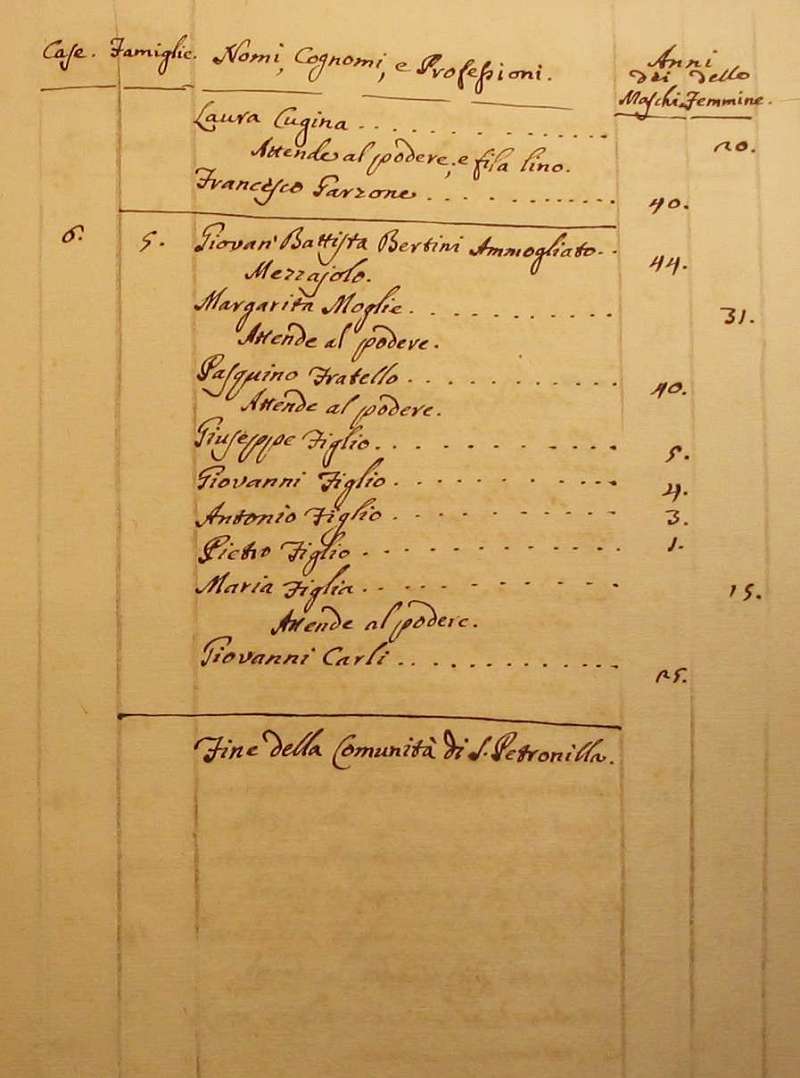 Case. Famiglie. Nomi, Cognomi, e Professioni. Anni
dei dello
Maschi Femmine.
Laura Cugina . . . . . . . . . . . . 20.
Attende al podere, e fila lino.
Francesco Garzone . . . . . . . . . . . 40.
6. 5. Giovan' Battista Bertini Ammogliato . . 44.
Mezzajolo.
Margarita Moglie . . . . . . . . . . . 31.
Attende al podere.
Pasquino Fratello . . . . . . . . . . . 40.
Attende al podere.
Giuseppe Figlio . . . . . . . . . . . 5.
Giovanni Figlio . . . . . . . . . . 4.
Antonio Figlio . . . . . . . . . . 3.
Pietro Figlio . . . . . . . . . . . 1.
Maria Figlia . . . . . . . . . . . 15.
Attende al podere.
Giovanni Carli . . . . . . . . . . . . 25.
Fine della Comunità di S. Petronilla.